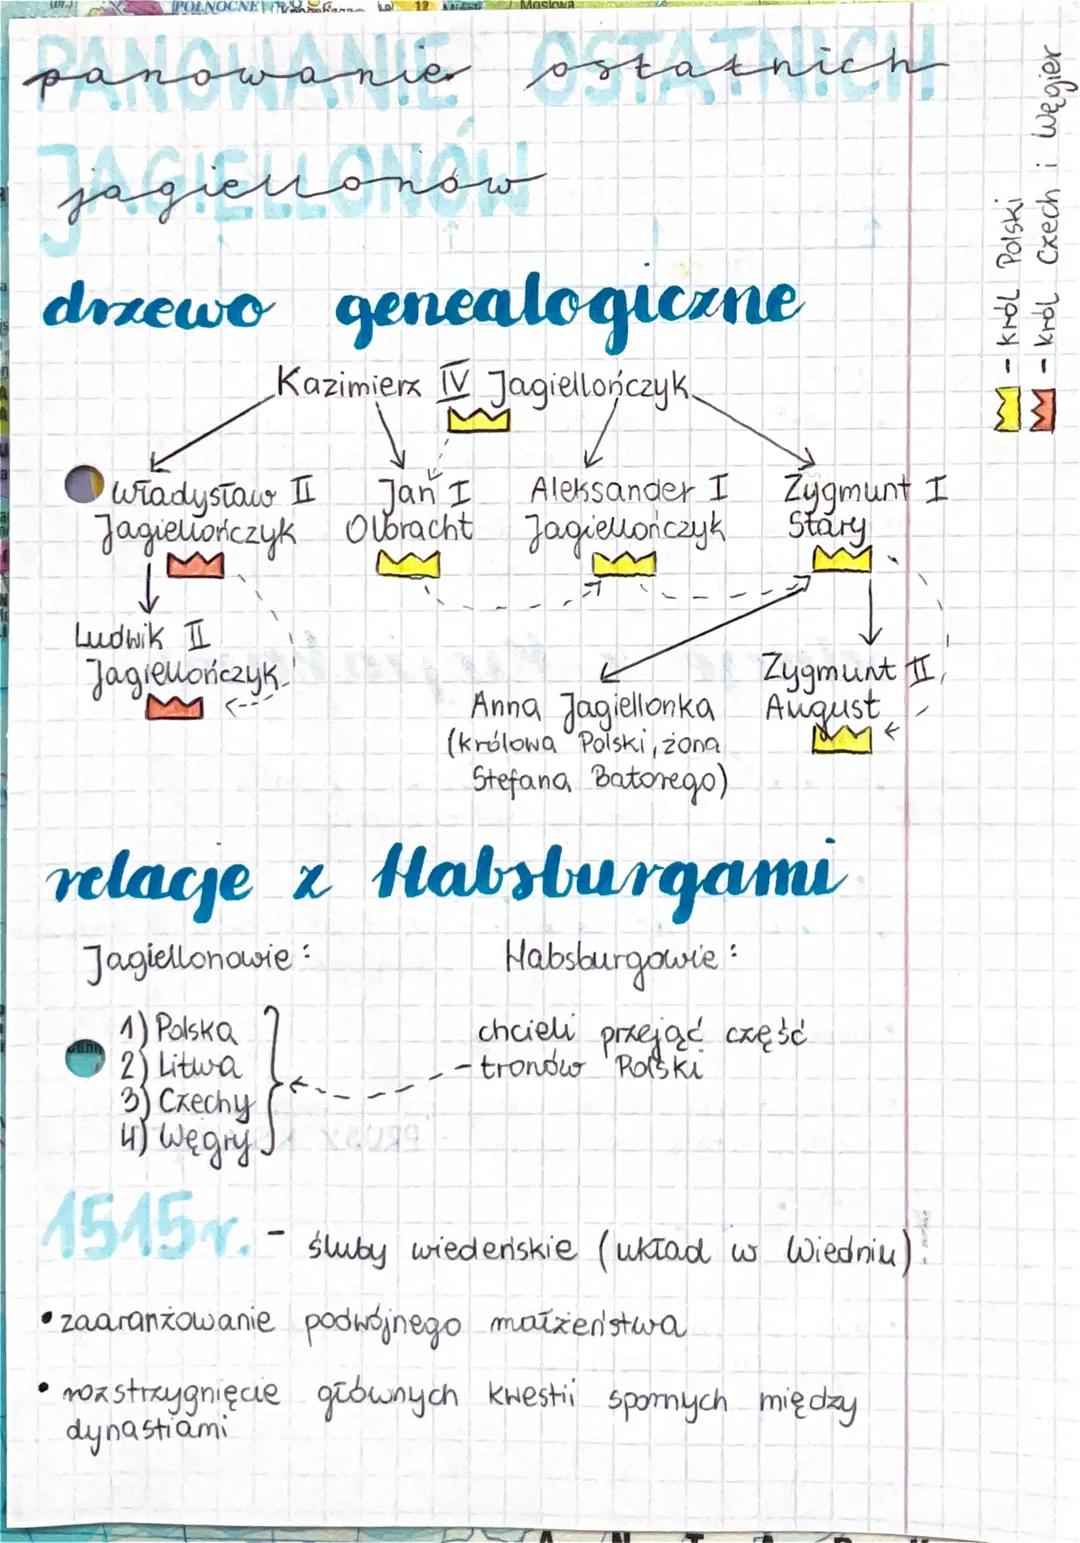 PÓŁNOCNE
12
Moskwa
PANOWANIE OSTATNICH
panowanie ostatnich
JAGIELLONÓW
jagiellonów
- król Polski
- król Czech i Węgier
drzewo genealogiczne
Kazimierz IV Jagiellończyk
Władysław II Jan I Aleksander I Zygmunt I
Jagiellończyk Olbracht Jagiellończyk Stary
Ludwik II
Jagiellończyk
Zygmunt II
Anna Jagiellonka August
(królowa Polski, żona
Stefana Batorego)
relacje z Habsburgami
Jagiellonowie: Habsburgowie:
1) Polska chcieli przejąć część
2) Litwa - tronów Polski
3) Czechy
4) Węgry
1515r. - śluby wiedeńskie (układ w Wiedniu)
• zaaranżowanie podwójnego małżeństwa
• rozstrzygnięcie głównych kwestii spornych między
dynastiami